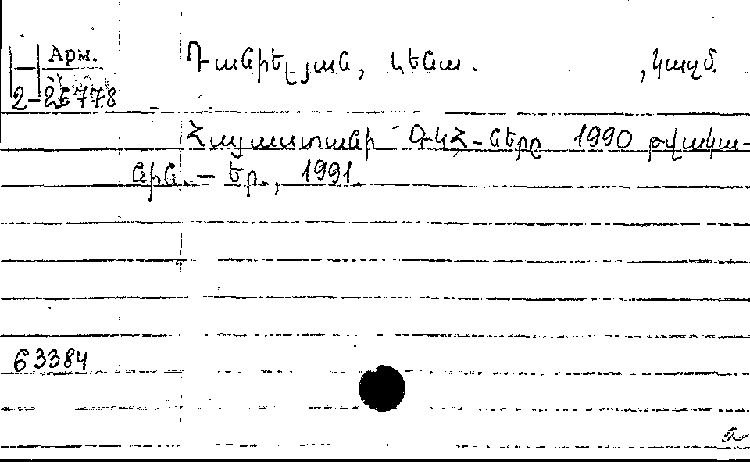 Арм.
2-26778
Դանիելյան, Լենա. , կազմ.
Հայաստանի ԳԿՀ-ները 1990 թվակա-
նին. — Եր., 1991.
63384